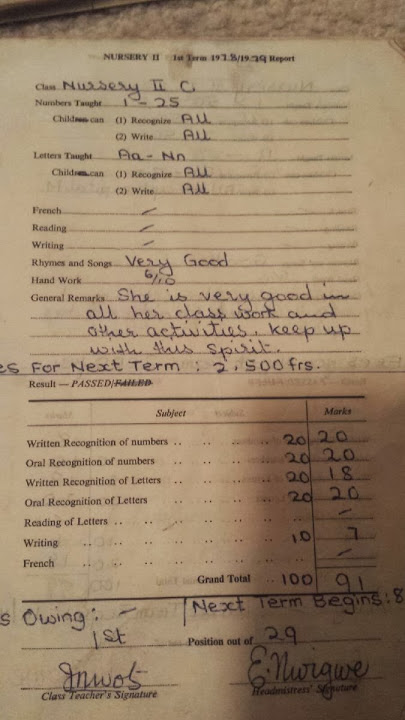 NURSERY II 1st Term 1978/1979 Report
Class Nursery II C
Numbers Taught 1 - 25
Children can (1) Recognize All
(2) Write All
Letters Taught Aa - Nn
Children can (1) Recognize All
(2) Write All
French —
Reading —
Writing —
Rhymes and Songs Very Good
Hand Work 6/10
General Remarks She is very good in
all her class work and
other activities. keep up
with this spirit.
es For Next Term : 2,500 frs.
Result — PASSED/FAILED
Subject Marks
Written Recognition of numbers .. .. 20 20
Oral Recognition of numbers .. .. 20 20
Written Recognition of Letters .. .. 20 18
Oral Recognition of Letters .. .. 20 20
Reading of Letters .. .. .. .. —
Writing .. .. .. .. 10 7
French .. .. .. .. —
Grand Total .. 100 91
s Owing : — Next Term Begins : 8
1st Position out of 29
E. Nwigwe
Class Teacher's Signature Headmistress' Signature